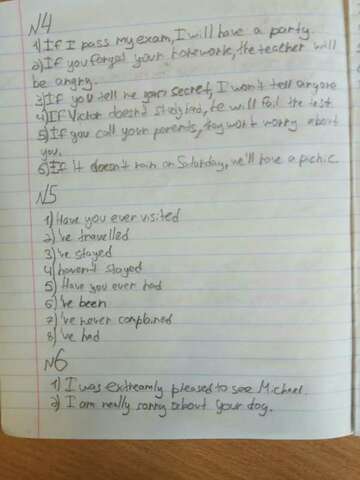 N4
1) If I pass my exam, I will have a party.
2) If you forget your homework, the teacher will
be angry.
3) If you tell me your secret, I won't tell anyone
4) If Victor doesn't study hard, he will fail the test.
5) If you call your parents, they won't worry about
you.
6) If it doesn't rain on Saturday, we'll have a picnic.
N5
1) Have you ever visited
2) 've travelled
3) 've stayed
4) haven't stayed
5) Have you ever had
6) 've been
7) 've never complained
8) 've had
N6
1) I was extreamly pleased to see Michael.
2) I am really sorry about your dog.